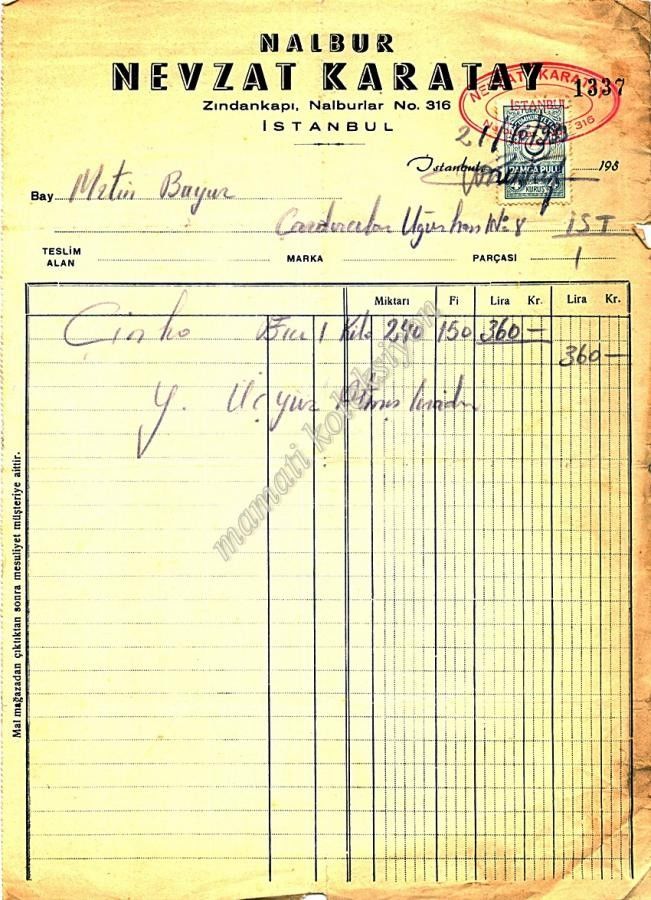 NALBUR
NEVZAT KARATAY
Zındankapı, Nalburlar No. 316
İSTANBUL
NEVZAT KARATAY
İSTANBUL
316
1337
DAMGA PULU
KURUŞ
İstanbul 195
Bay Metin
Uğurhan No 8 İST
TESLİM ALAN MARKA PARÇASI 1
Miktarı Fi Lira Kr. Lira Kr.
Çinko Kilo 240 150 360 —
360 —
Y. Üçyüz Altmış liradır
Mal mağazadan çıktıktan sonra mesuliyet müşteriye aittir.
mamati koleksiyon